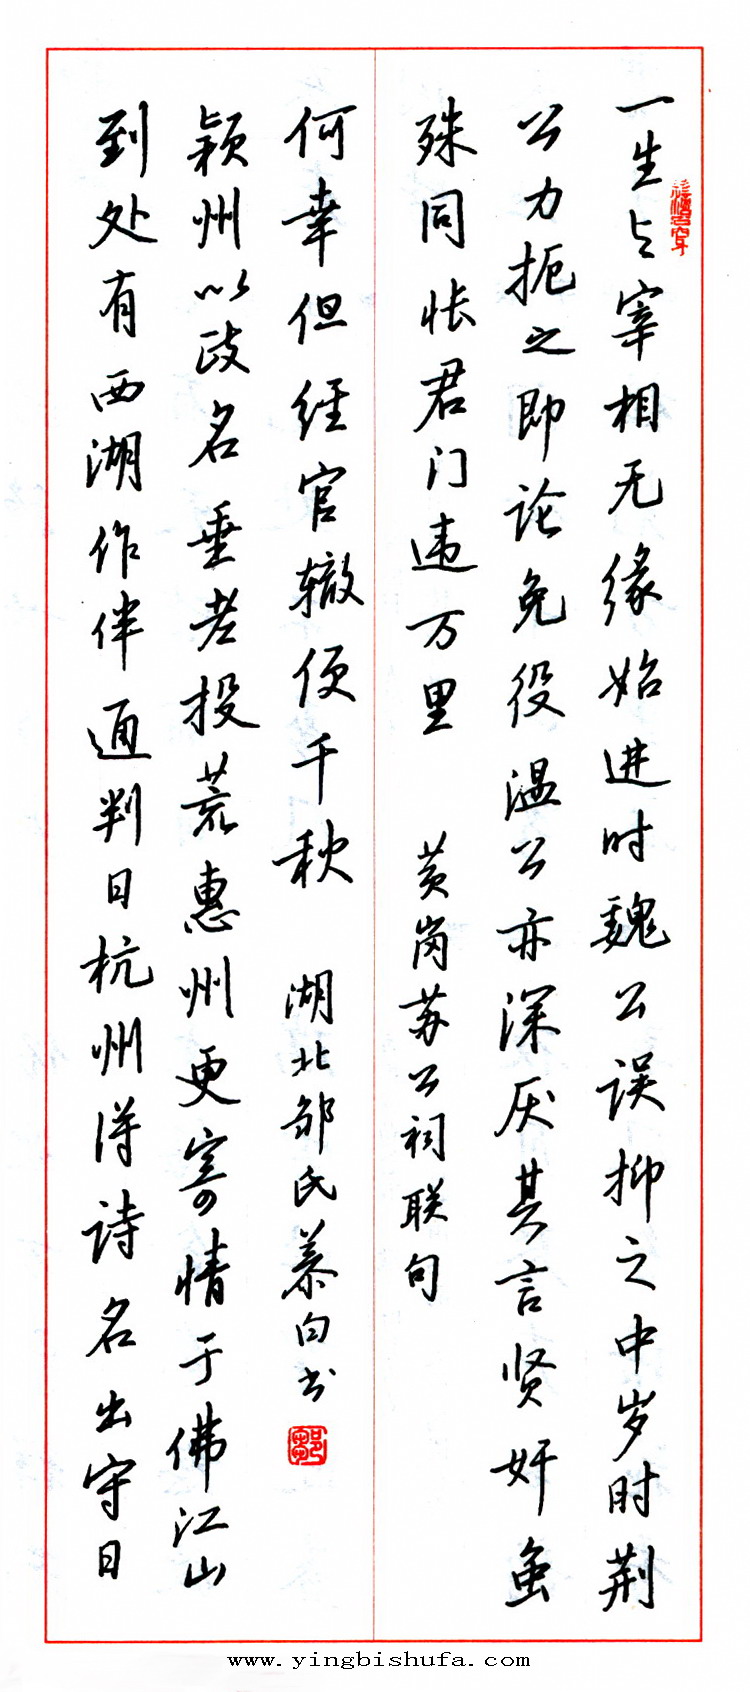 一生与宰相无缘始进时魏公误抑之中岁时荆
公力扼之即论免役温公亦深厌其言贤奸虽
殊同怅君门违万里 黄岗苏公祠联句
到处有西湖作伴通判日杭州得诗名出守日
颍州以政名垂老投荒惠州更寄情于佛江山
何幸但经官辙便千秋 湖北邹氏慕白书
www.yingbishufa.com